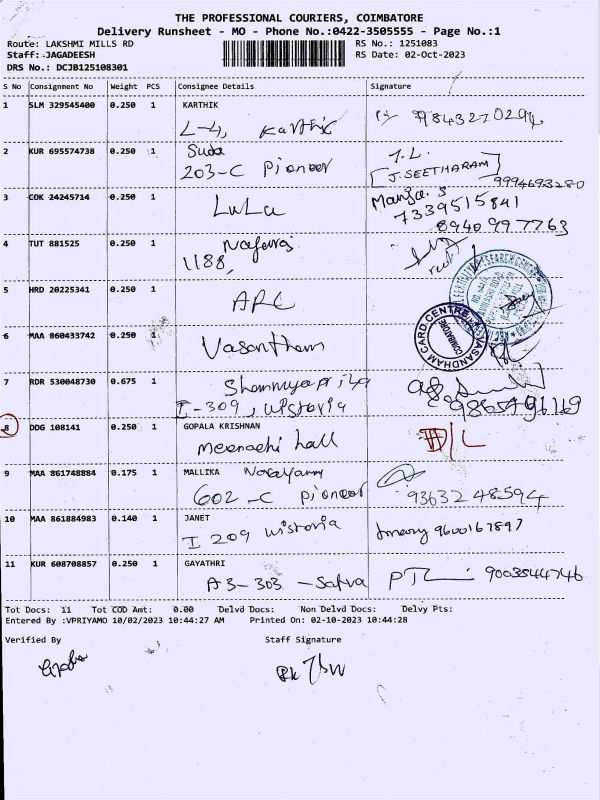 THE PROFESSIONAL COURIERS, COIMBATORE
Delivery Runsheet - MO - Phone No.:0422-3505555 - Page No.:1
Route: LAKSHMI MILLS RD RS No.: 1251083
Staff: JAGADEESH RS Date: 02-Oct-2023
DRS No.: DCJB125108301
S No Consignment No Weight PCS Consignee Details Signature
1 SLM 329545400 0.250 1 KARTHIK
L-4, Karthik 9843270294
2 KUR 695574738 0.250 1 Suda J.L.
203-C Pioneer [J.SEETHARAM] 9994693280
3 COK 24245714 0.250 1 LuLu Manju. S
7339515841
8940997763
4 TUT 881525 0.250 1
1188,
5 HRD 20225341 0.250 1 APL
6 MAA 860433742 0.250 1 Vasantham VASANDHAM CARD CENTRE COIMBATORE
7 RDR 530048730 0.675 1 Shanmyapriya
I-309, Wistoria 9865496169
8 DDG 108141 0.250 1 GOPALA KRISHNAN
Meenachi hall D/L
9 MAA 861748884 0.175 1 MALLIKA Narayanny
602-C Pioneer 9363248594
10 MAA 861884983 0.140 1 JANET
I 209 Wistoria 9600167897
11 KUR 608708857 0.250 1 GAYATHRI
A3-303 - Satva 9003544746
Tot Docs: 11 Tot COD Amt: 0.00 Delvd Docs: Non Delvd Docs: Delvy Pts:
Entered By :VPRIYAMO 10/02/2023 10:44:27 AM Printed On: 02-10-2023 10:44:28
Verified By Staff Signature